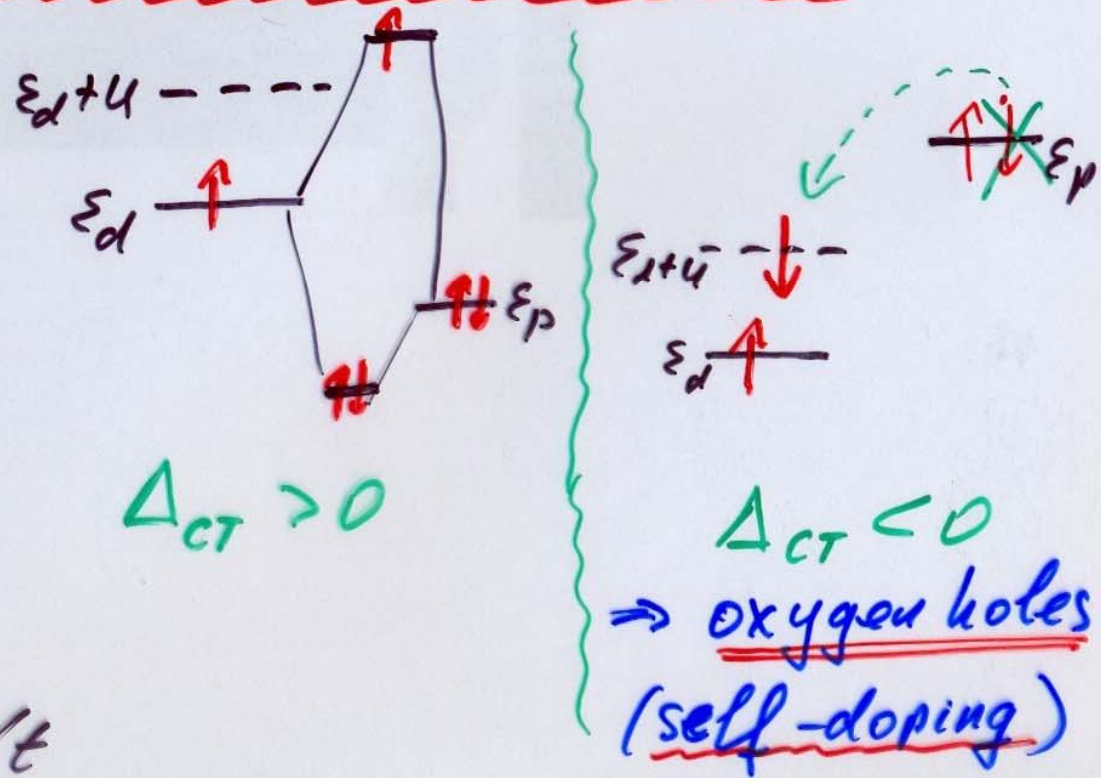 εd+U
εd
εp
Δ_CT > 0
εp
εd+U
εd
Δ_CT < 0
⇒ oxygen holes
(self-doping)
/t